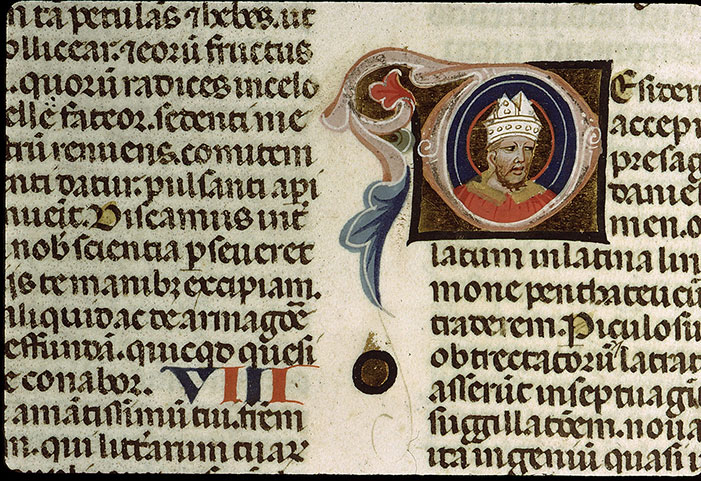 ta petulas ⁊ hebes. ut
ollicear. ⁊ eorū fructus
. quorū radices in celo
elle fateor. sedenti me
renuens. comitem
nti datur. pulsanti api
nueīt. Discamus in t̄
nob̄ scientia p̱seueret
is te manibȝ excipiam.
liquid ac de armagde
effundā. quicqd quesi
e conabor. VIII
amātissimū tui. frem
. qui litt̄arum tuar̄
DEsiderii
accepi
presag
daniel
men. o
latum in latina lin
mone penthateucū
traderem. Piculosū
obtrectatorū latrat
asserūt in septuagin
suggillat̄oem. noua
ita ingeniū quasi